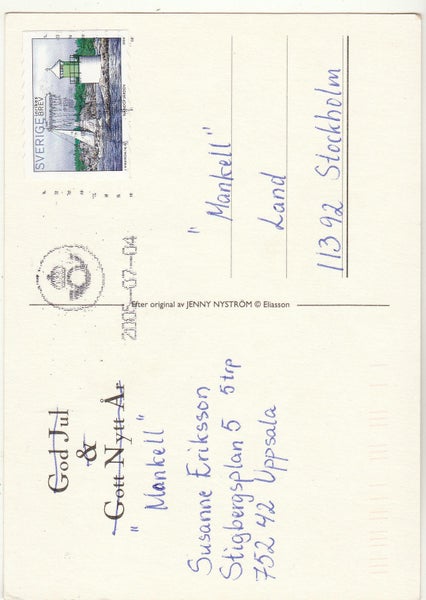 God Jul
&
Gott Nytt År
"Mankell"
Susanne Eriksson
Stigbergsplan 5 5trp
752 42 Uppsala
Efter original av JENNY NYSTRÖM © Eliasson
SVERIGE
BREV
2005-07-04
"Mankell"
Land
113 92 Stockholm